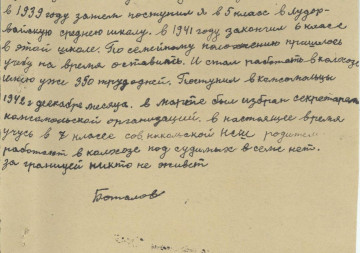 в 1939 году затем поступил я в 5 класс в Кудор-
вайскую среднею школу. в 1941 году закончил 6 класс
в этой школе. По семейному положению пришлось
учобу на время оставить. И стал работать в колхозе
имею уже 350 трудодней. Поступил в комсомольцы
1942 г декабре месяца. в марте был избран секретарем
комсомольской организаций. в настоящее время
учусь в 7 классе НСШ родители
работают в колхозе под судимых в семе нет.
за границей никто не живет
Боталов